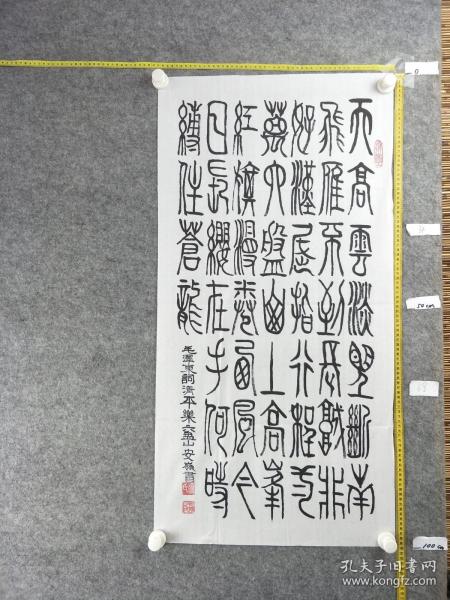 天高雲淡望斷南
飛雁不到長城非
好漢屈指行程二
萬六盤山上高峯
紅旗漫卷西風今
日長纓在手何時
縛住蒼龍
毛澤東詞清平樂六盤山 安書
0
50cm
100cm
孔夫子旧书网
www.kongfz.com